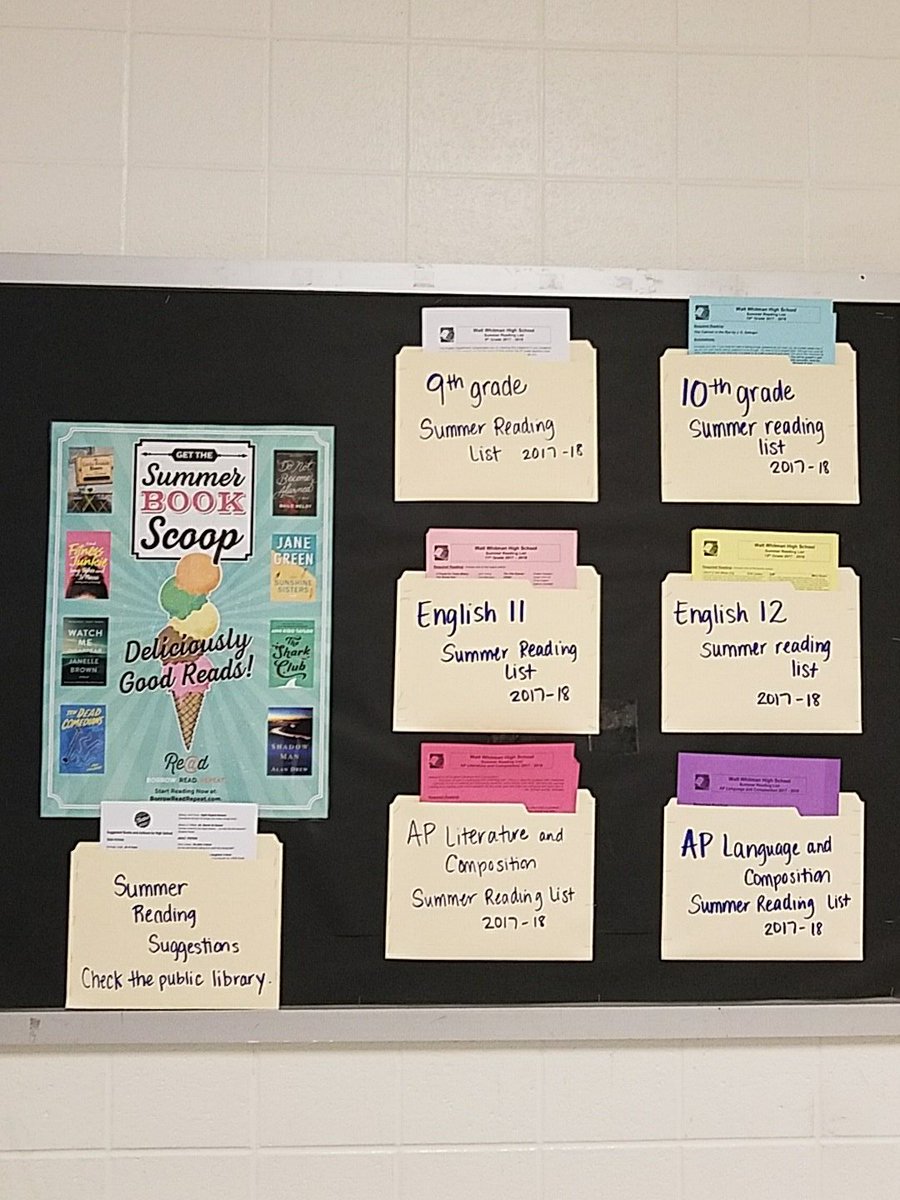 GET THE
Summer
BOOK
Scoop
Do Not
Become
Alarmed
Fitness
Junkie
JANE
GREEN
SUNSHINE
SISTERS
WATCH
ME
JANELLE
BROWN
Deliciously
Good Reads!
The
Shark
Club
TEN DEAD
COMEDIANS
SHADOW
MAN
ALAN DREW
Re@d
BORROW. READ. REPEAT.
Start Reading Now at
BorrowReadRepeat.com
Summer
Reading
Suggestions
Check the public library.
Walt Whitman High School
Summer Reading List
9th Grade 2017 - 2018
9th grade
Summer Reading
List 2017-18
Walt Whitman High School
Summer Reading List
10th Grade 2017 - 2018
10th grade
Summer reading
list
2017-18
Walt Whitman High School
Summer Reading List
11th Grade 2017 - 2018
English 11
Summer Reading
List
2017-18
Walt Whitman High School
Summer Reading List
12th Grade 2017 - 2018
English 12
Summer reading
list
2017-18
Walt Whitman High School
Summer Reading List
AP Literature and Composition 2017 - 2018
AP Literature and
Composition
Summer Reading List
2017-18
Walt Whitman High School
Summer Reading List
AP Language and Composition 2017 - 2018
AP Language and
Composition
Summer Reading List
2017-18